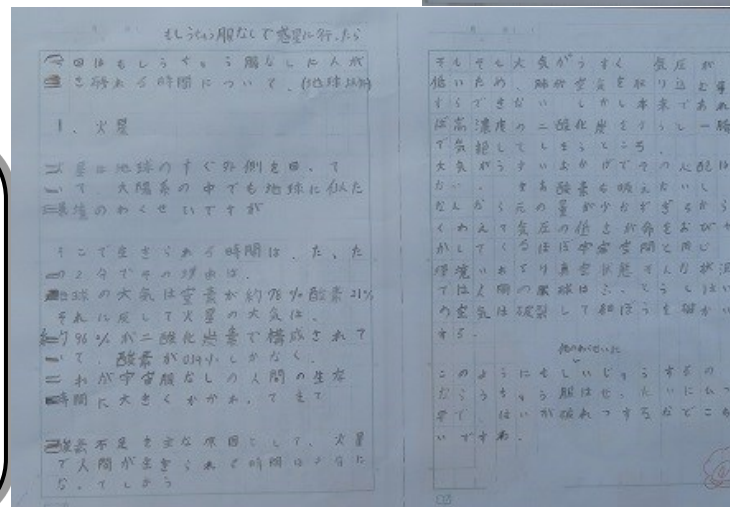 もしうちゅう服なしで惑星に行ったら
今回はもしうちゅう服なしに人が
生き残れる時間について、(地球以外)
1、火星
火星は地球のすぐ外側を回って
いて、太陽系の中でも地球に似た
環境のわくせいですが
そこで生きられる時間は、たった
の2分でその理由は、
地球の大気は窒素が約78%酸素21%
それに反して火星の大気は、
約96%が二酸化炭素で構成されて
いて、酸素が しかなく、
これが宇宙服なしの人間の生存
時間に大きくかかわってきて
酸素不足を主な原因として、火星
で人間が生きられて時間は2分に
なってしまう
そもそも大気がうすく 気圧が
低いため、肺が空気を取り込む事
すらできない しかし本来であれ
ば高濃度の二酸化炭をすうと一瞬
で気絶してしまうところ、
大気がうすいおかげでその心配は
ない、 まあ酸素も吸えないし
なんなら元の量が少なすぎるから
くわえて気圧の低さが命をおびや
かしてくるほぼ宇宙空間と同じ
環境 真空状態そんな状況
では人間の眼球は とうしはい
の空気は破裂して 細かい
する。
他のわくせいに
このようにもし いじゅうするの
ならうちゅう服はぜったいにひつ
よで、はいが破れつするなどこわ
いですね。